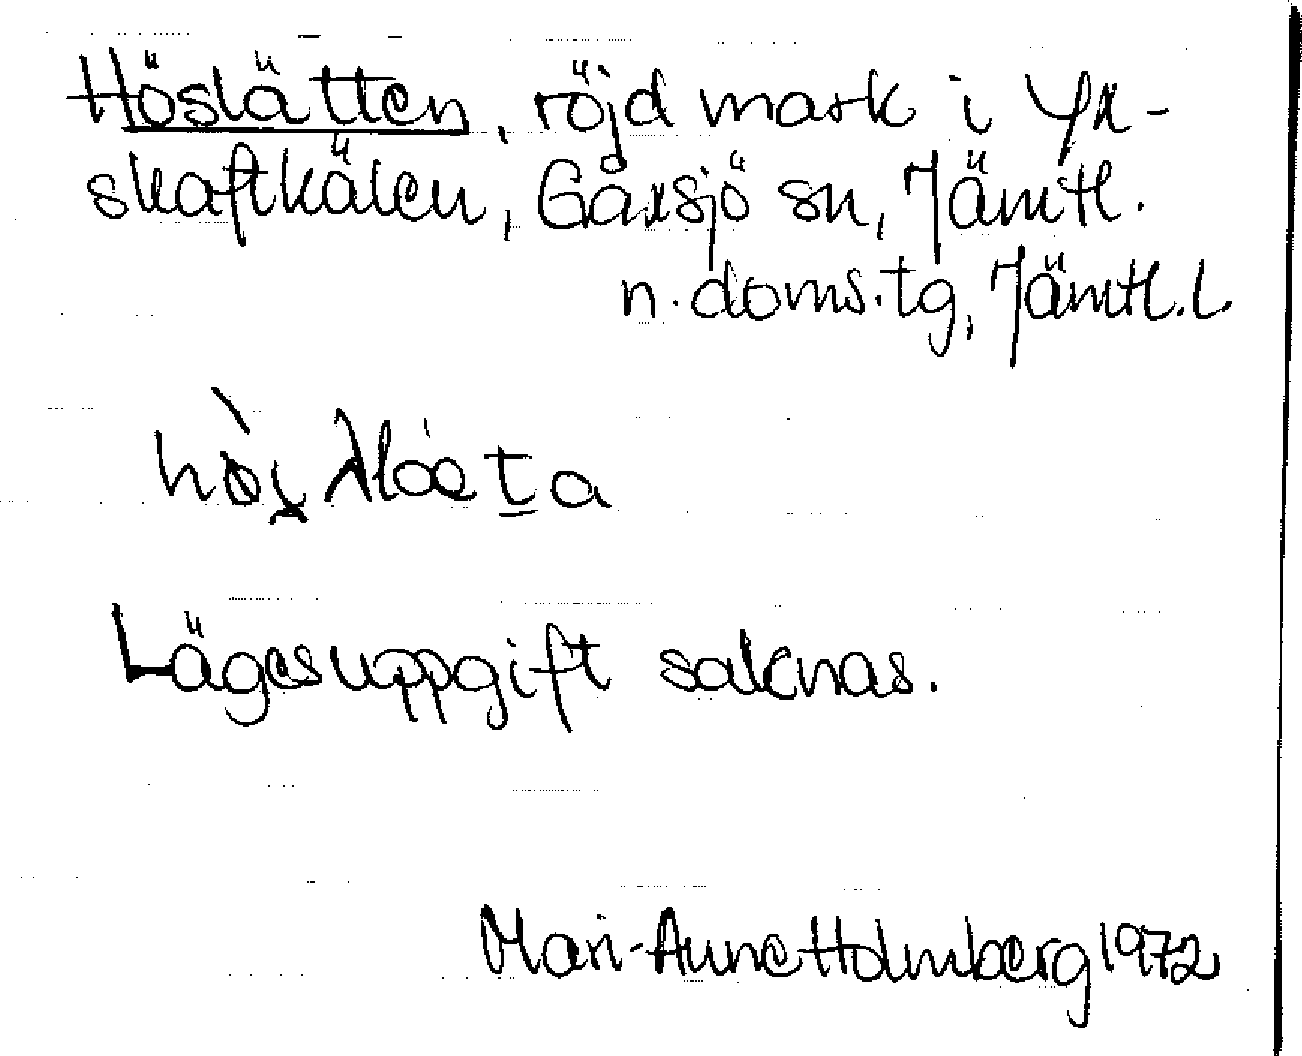 Höslätten, röjd mark i Yx-
skaftkälen, Gåxsjö sn, Jämtl.
n. doms.tg, Jämtl. L
Lägesuppgift saknas.
Mari-Anne Holmberg 1972